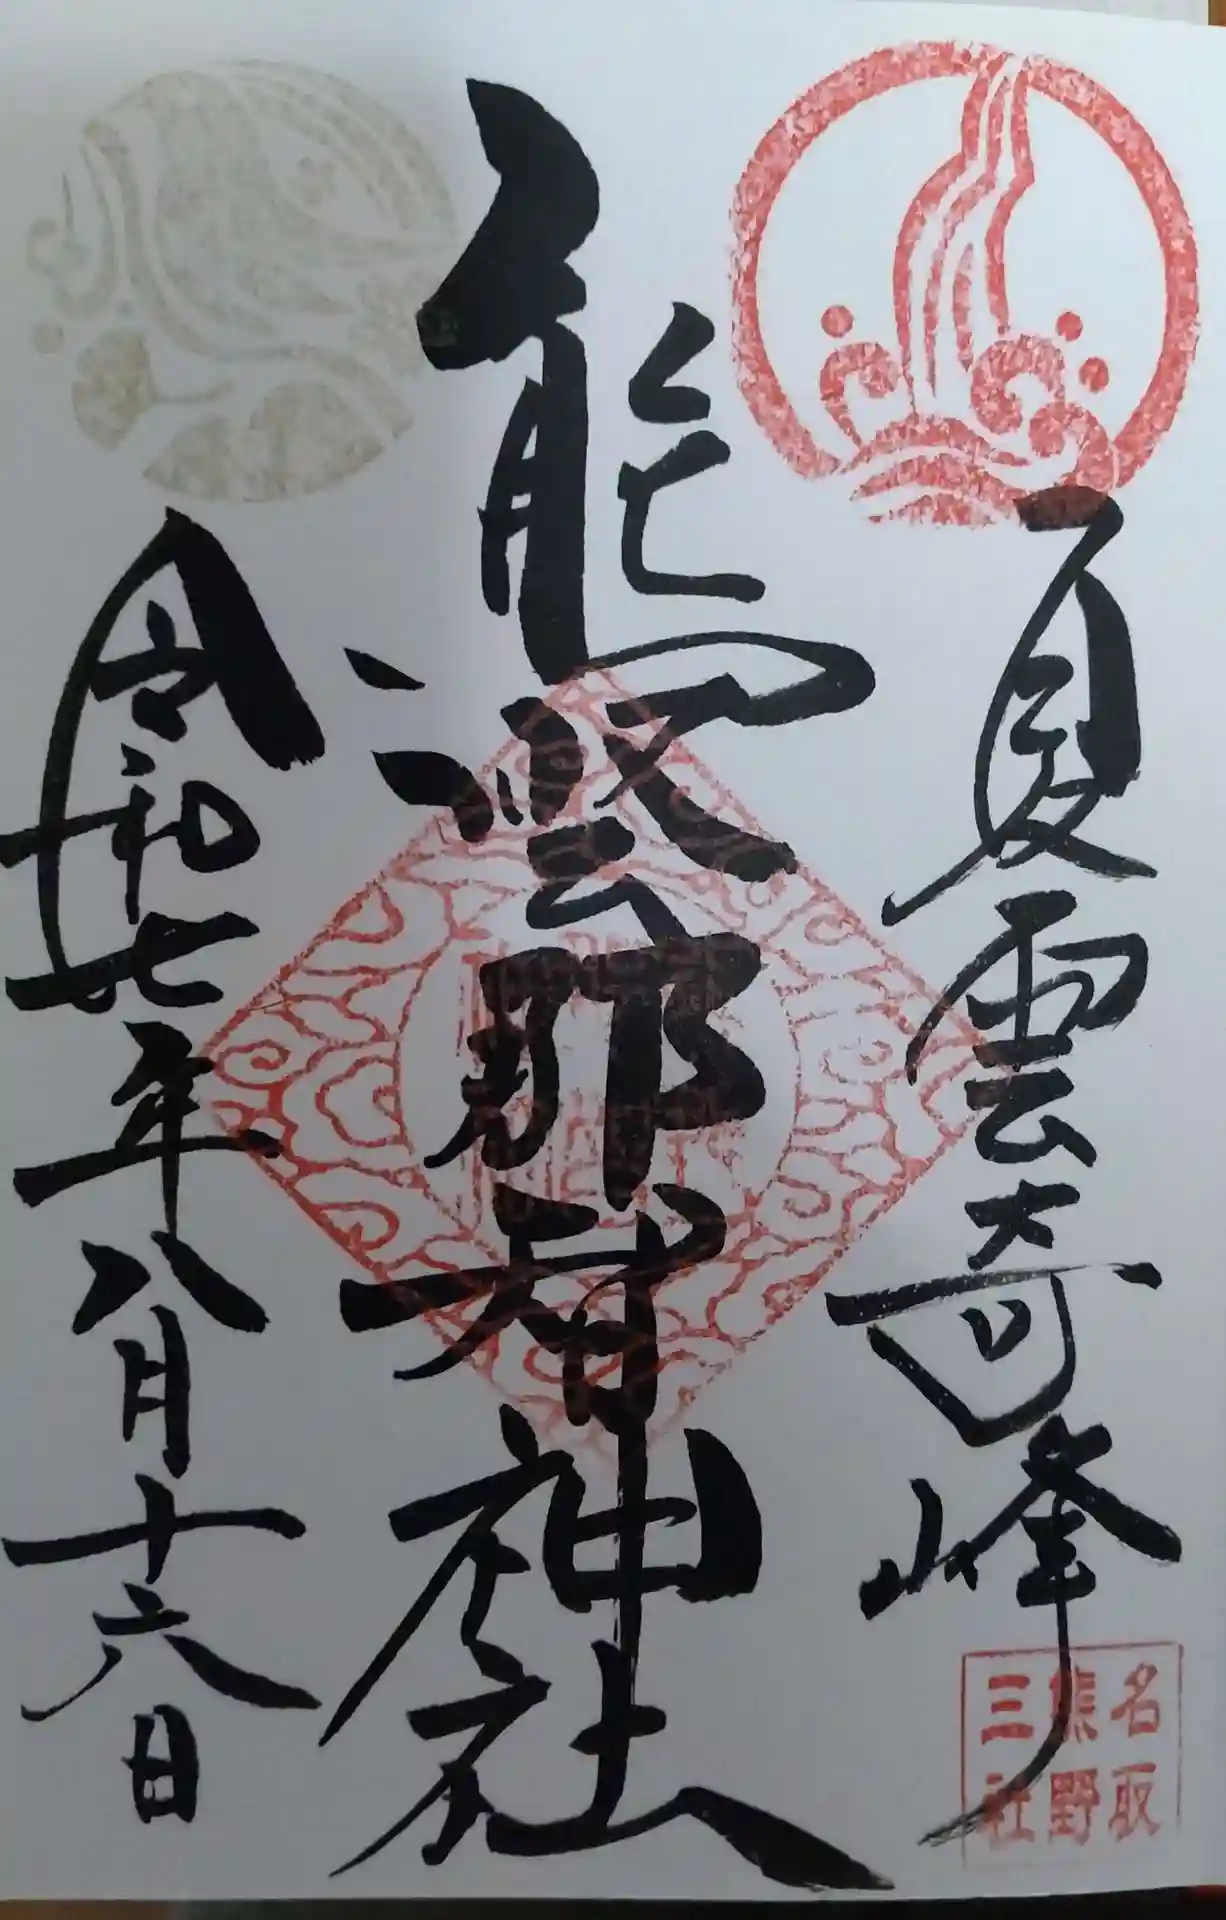 夏雲奇峰
名取
熊野
三社
熊野那智神社
令和七年八月十六日